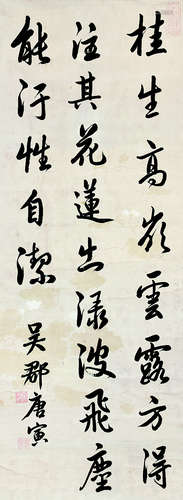 桂生高嶺雲露方得
注其花蓮出渌波飛塵
能汙性自潔
吳郡唐寅